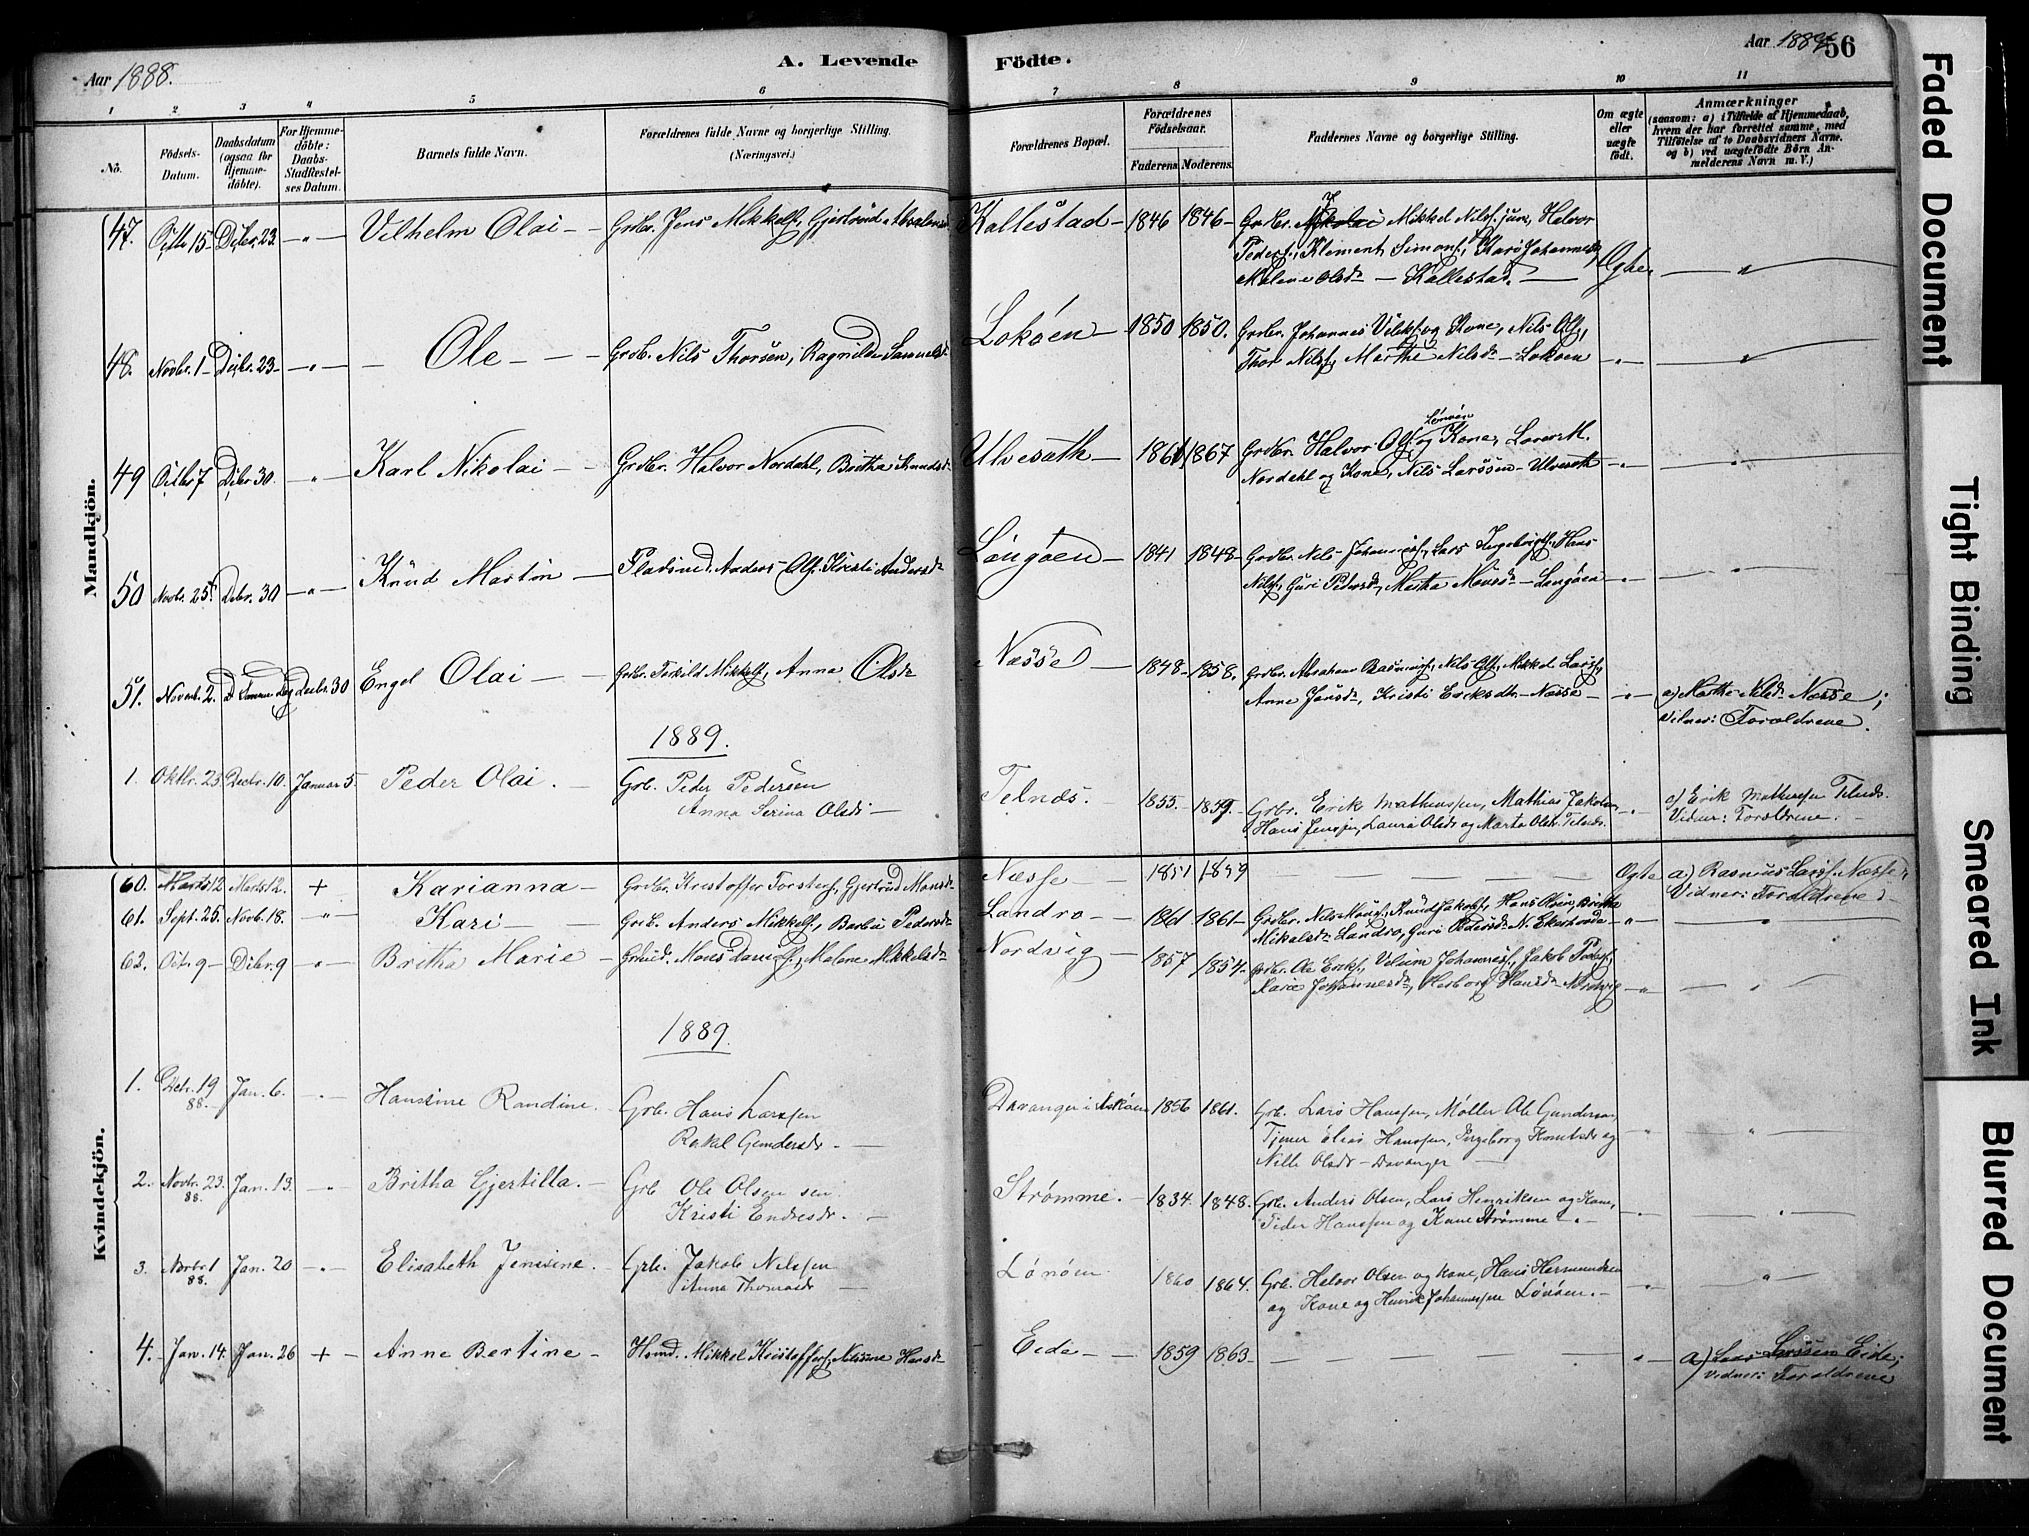 Aar 1888.
A. Levende
Födte.
Aar 1889
56
1
2
3
4
5
6
7
8
9
10
11
No.
Födsels-
Datum.
Daabsdatum
(ogsaa for
Hjemme-
döbte).
For Hjemme-
döbte:
Daabs-
Stadfæstel-
ses Datum.
Barnets fulde Navn.
Forældrenes fulde Navne og borgerlige Stilling.
(Næringsvei.)
Forældrenes Bopæl.
Forældrenes
Födselsaar.
Faderens.
Moderens.
Faddernes Navne og borgerlige Stilling.
Om ægte
eller
uægte
födt.
Anmærkninger
(saasom: a) i Tilfælde af Hjemmedaab,
hvem der har forrettet samme, med
Tilföielse af to Daabsvidners Navne.
og b) ved uægtefödte Börn An-
melderens Navn m. V.)
Mandkjön.
47. Octb 15 Decbr. 23 — " — Vilhelm Olai — Grdbr. Jens Mikkels. Gjertrud Kallestad — 1846 1846 — Grdbr. Mikkel Nilss. jun, Halvor
Peders., Klement Simons., Kari Johannesd.,
Malene Olsdr — Kallestad. — Ægte — " —
48. Novbr. 1 — Decbr. 23 — " — Ole — Grdb. Nils Thorsen, Ragnilde Samuelsd. Lokøen — 1850 1850. Grdbr. Johannes Vilks. og Kone, Nils Ols.,
Thor Nilss., Marthe Nilsdr — Lokøen — " — — " —
49 Octbr 7 Decbr. 30. — " — Karl Nikolai — Grdbr. Halvor Nordahl, Britha Knudsd. Ulvesæth — 1861 1867 Grdbr. Halvor Ols. Lønøen og Kone, Lars M.
Nordahl og Kone, Nils Larssen — Ulvesæth — " — — " —
50 Novbr. 25. Decbr. 30 — " — Knud Martin — Pladsmd. Anders Ols. Kristi Andersdr Langøen — 1841 1848 — Grdbr. Nils Johanness., Lars Ingebrigts., Hans
Nilss., Guri Pedersdr, Martha Monsdr — Langøen — " — — " —
51. Novemb. 2. Decbr 30 Engel Olai — Grdbr. Torkild Mikkels., Anna Olsdr Næsse — 1848 — 1858. Grdbr. Abraham Rasmuss., Nils Ols., Mikkel Larss.,
Anne Jonsdr, Kristi Eriksdtr — Næsse — " — a) Marthe Nilsdr Næsse;
Vidner: Forældrene.
1889.
1. Oktbr. 23 Decbr. 10. Januar 5. Peder Olai. — Grb. Peder Pedersen
Anna Serina Olsdr — Telnæs. 1855. 1859. Grbr. Erik Mathiassen, Mathias Jakobsen
Hans Jenssen, Laura Olsdr og Marta Olsdr Telnæs. — " a) Erik Mathiassen Telnæs.
Vidner: Forældrene. —
Kvindekjön.
60. Marts 12 Marts 12. + Karianna — Grdbr. Kristoffer Torsteins., Gjertrud Monsdr Næsse — 1851 1859 — Ægte a) Rasmus Larss. Næsse;
Vidner: Forældrene
61. Sept. 25. Novb. 18. — " — Kari — Grdbr. Anders Mikkels., Barbru Pedersdr Landro — 1861 1861 — Grdbr. Nils Mons., Knud Jakobs., Hans Olsen, Britha
Mikalsdr Landro, Guri Pedersdr N. Ekerhovde — " — "
62. Octb. 9 — Decbr. 9 — " — Britha Marie — Grdbr. Mons Daniels., Malene Mikkelsdr Nordvig — 1857 1854. Grdbr. Ole Eriks., Vilum Johanness., Jakob Peders.,
Kari Johannesdr, Herborg Hansdr — Nordvig — " — — " —
1889.
1. Octr. 19
88. Jan. 6. — " — Hansine Randine. Grb. Hans Larssen
Rakel Gundersdr. — Davanger i Askøen 1856 1861. Grb. Lars Hanssen, Møller Ole Gundersen,
Tjener Elias Hanssen, Ingeborg Knutsdr og
Nille Olsdr — Davanger — " — "
2. Novbr. 23.
88. Jan. 13. — " — Britha Gjertilla. — Grb Ole Olsen sen.
Kristi Endresdr. — Strømme. — 1834. 1848. Grb. Anders Olsen, Lars Henriksen og Kone,
Peder Hanssen og Kone Strømme. — " — "
3. Novbr. 1
88. Jan. 20 — " — Elisabeth Jensine. Grb. Jakob Nilssen
Anna Thomasdr — Lønøen 1860 1864. Grb. Halvor Olsen og Kone, Hans Hermundsen
og Kone og Henrik Johannessen Lønøen. — " — "
4. Jan. 14. Jan. 26 + — Anne Bertine — Husmd. Mikkel Kristoffers., Nilsine Hansdr Eide — 1859 1863 — — " — a) Lars Larssen Eide;
Vidner: Forældrene
Faded Document
Tight Binding
Smeared Ink
Blurred Document